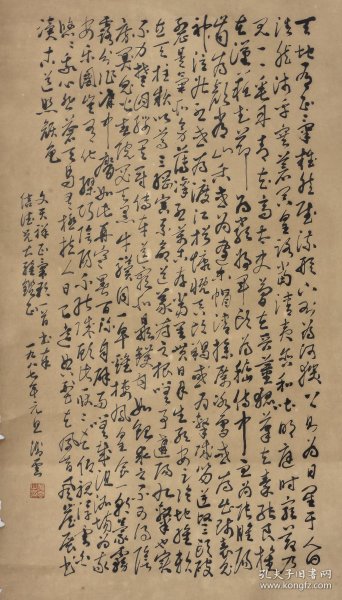 天地有正氣雜然賦流形下則為河嶽上則為日星於人曰
浩然沛乎塞蒼冥皇路當清夷含和吐明庭時窮節乃
見一一垂丹青在齊太史簡在晉董狐筆在秦張良椎
在漢蘇武節為嚴將軍頭為嵇侍中血為張睢陽
齒為顏常山舌或為遼東帽清操厲冰雪或為出師表鬼
神泣壯烈或為渡江楫慷慨吞胡羯或為擊賊笏逆豎頭破
裂是氣所磅礴凜烈萬古存當其貫日月生死安足論地維賴以
立天柱賴以尊三綱實繫命道義為之根嗟予遘陽九隸也實
不力楚囚纓其冠傳車送窮北鼎鑊甘如飴求之不可得陰
房闃鬼火春院閟天黑牛驥同一皁雞棲鳳凰食一朝蒙霧
露分作溝中瘠如此再寒暑百沴自辟易哀哉沮洳場為我
安樂國豈有他繆巧陰陽不能賊顧此耿耿在仰視浮雲白
悠悠我心悲蒼天曷有極哲人日已遠典刑在夙昔風簷展書
讀古道照顏色
文天祥正氣歌一首書奉
正
一九八七年元旦
孔夫子旧书网